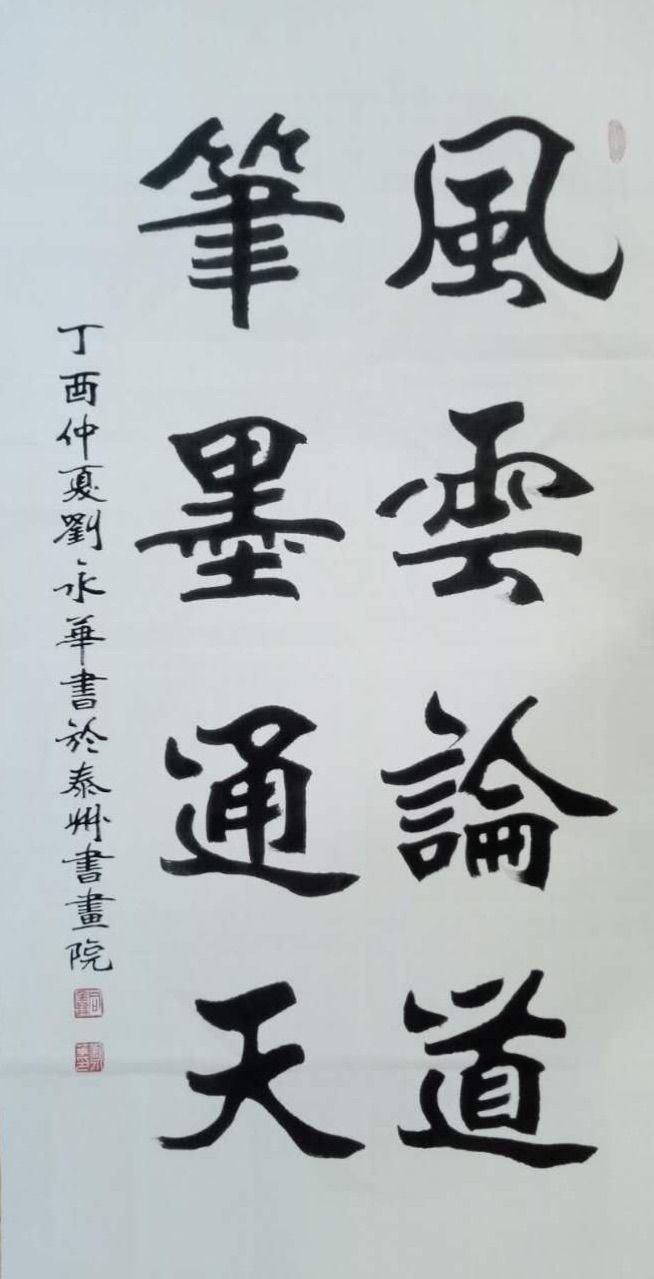 風雲論道
筆墨通天
丁酉仲夏劉永華書於泰州書畫院